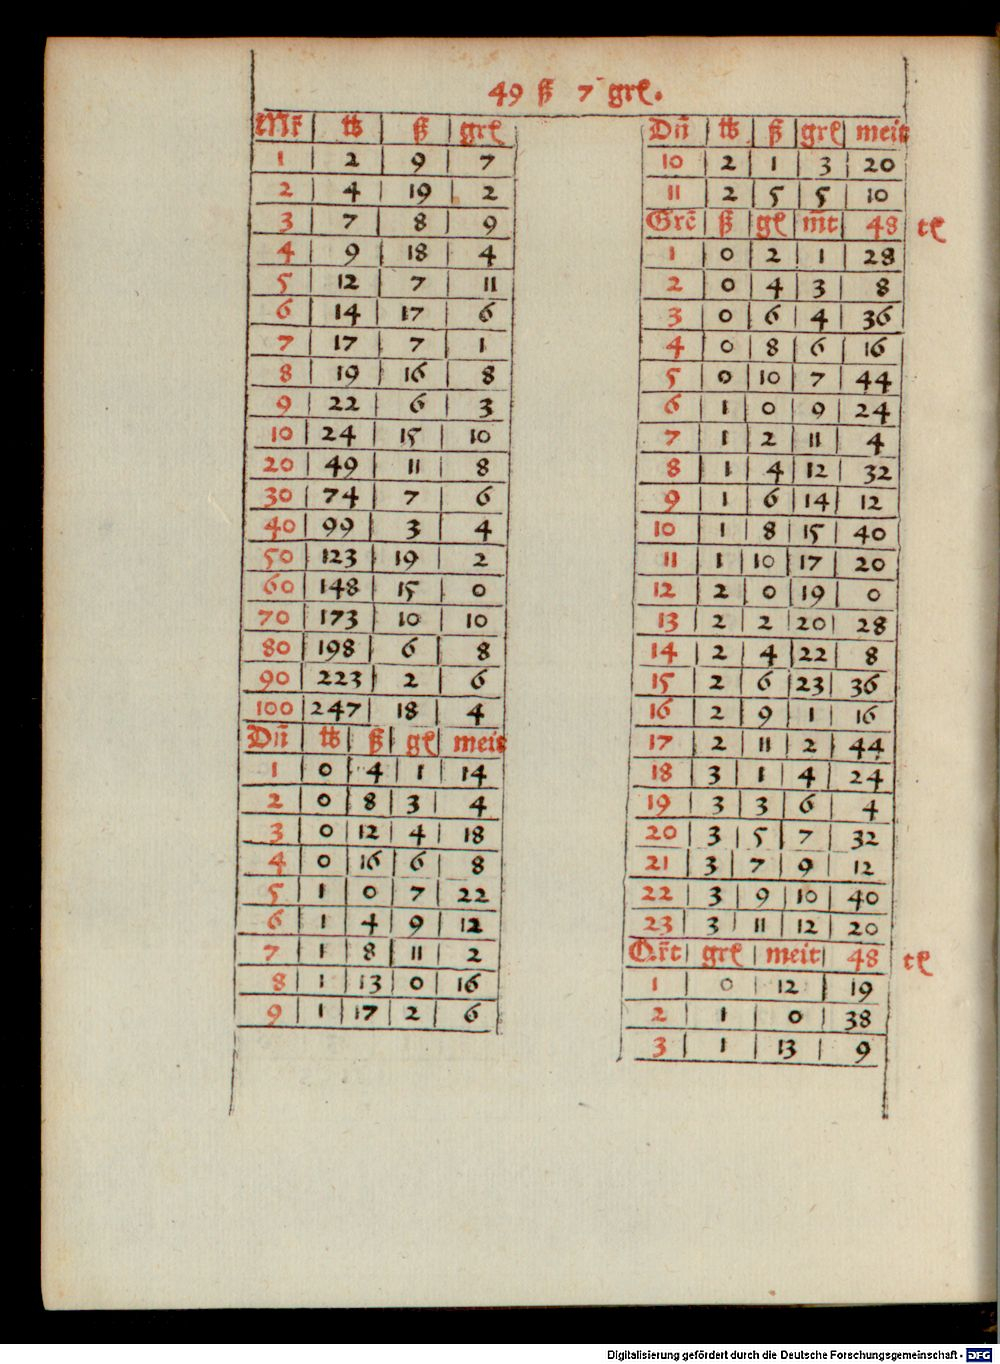 49 ß 7 grꝭ.
Mr̄ t℔ ß grꝭ
1 2 9 7
2 4 19 2
3 7 8 9
4 9 18 4
5 12 7 11
6 14 17 6
7 17 7 1
8 19 16 8
9 22 6 3
10 24 15 10
20 49 11 8
30 74 7 6
40 99 3 4
50 123 19 2
60 148 15 0
70 173 10 10
80 198 6 8
90 223 2 6
100 247 18 4
Dn̄ t℔ ß gꝭ meit
1 0 4 1 14
2 0 8 3 4
3 0 12 4 18
4 0 16 6 8
5 1 0 7 22
6 1 4 9 12
7 1 8 11 2
8 1 13 0 16
9 1 17 2 6
Dn̄ t℔ ß grꝭ meit
10 2 1 3 20
11 2 5 5 10
Grē ß gꝭ m̄t 48 tꝭ
1 0 2 1 28
2 0 4 3 8
3 0 6 4 36
4 0 8 6 16
5 0 10 7 44
6 1 0 9 24
7 1 2 11 4
8 1 4 12 32
9 1 6 14 12
10 1 8 15 40
11 1 10 17 20
12 2 0 19 0
13 2 2 20 28
14 2 4 22 8
15 2 6 23 36
16 2 9 1 16
17 2 11 2 44
18 3 1 4 24
19 3 3 6 4
20 3 5 7 32
21 3 7 9 12
22 3 9 10 40
23 3 11 12 20
Qr̄t grꝭ meit 48 tꝭ
1 0 12 19
2 1 0 38
3 1 13 9
Digitalisierung gefördert durch die Deutsche Forschungsgemeinschaft - DFG